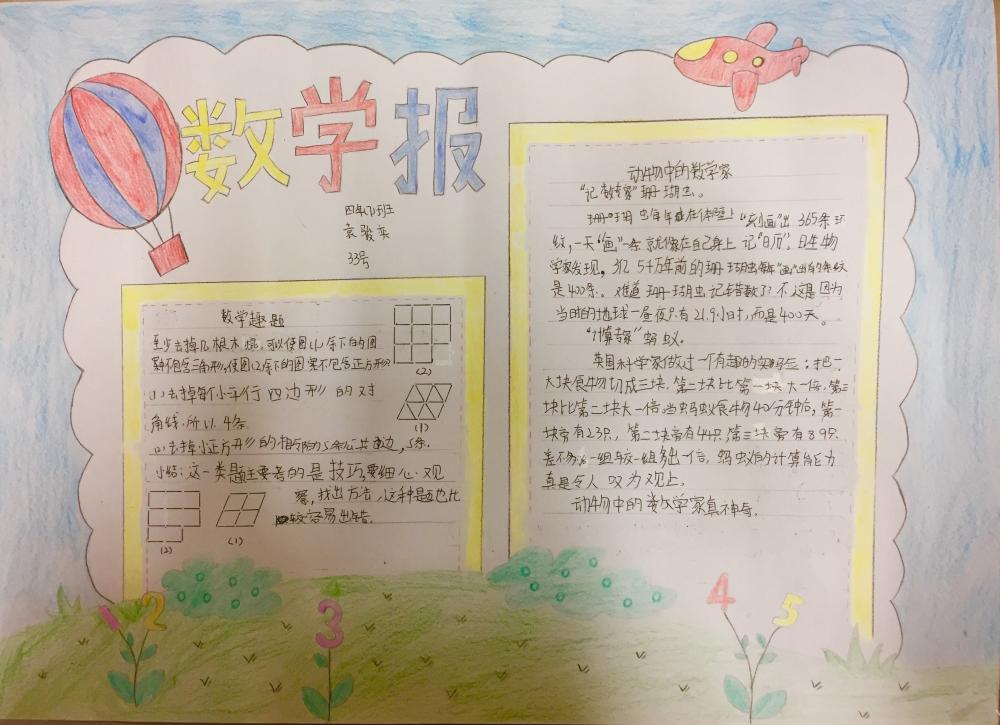 数学报
四年(7)班
袁骏奕
33号
数学趣题
至少去掉几根木棍,可以使图(1)余下的图
要不包含三角形,使图(2)余下的图里不包含正方形?
(1)去掉每个小平行四边形的对
角线,所以4条
(2)去掉小正方形的相邻的5条公共边,5条.
小结:这一类题主要考的是技巧,要细心观
察,找出方法,这种题也比
较容易出错.
(2)
(1)
(2)
(1)
动物中的数学家
“记数专家”珊瑚虫。
珊瑚虫每年在体壁上“刻画”出365条环
纹,一天“画”一条就像在自己身上记“日历”.且生物
学家发现,3亿5千万年前的珊瑚虫每年“画”出的条纹
是400条。难道珊瑚虫记错数了?不,这是因为
当时的地球一昼夜只有21.9小时,而是400天。
“计算专家”蚂蚁.
英国科学家做过一个有趣的实验:把一
大块食物切成三块,第二块比第一块大一倍,第三
块比第二块大一倍.当蚂蚁食物40分钟后,第一
块旁有23只,第二块旁有44只,第三块旁有89只.
差不多一组与一组多出一倍,蚂蚁的计算能力
真是令人叹为观止,
动物中的数学家真神奇.
1
2
3
4
5